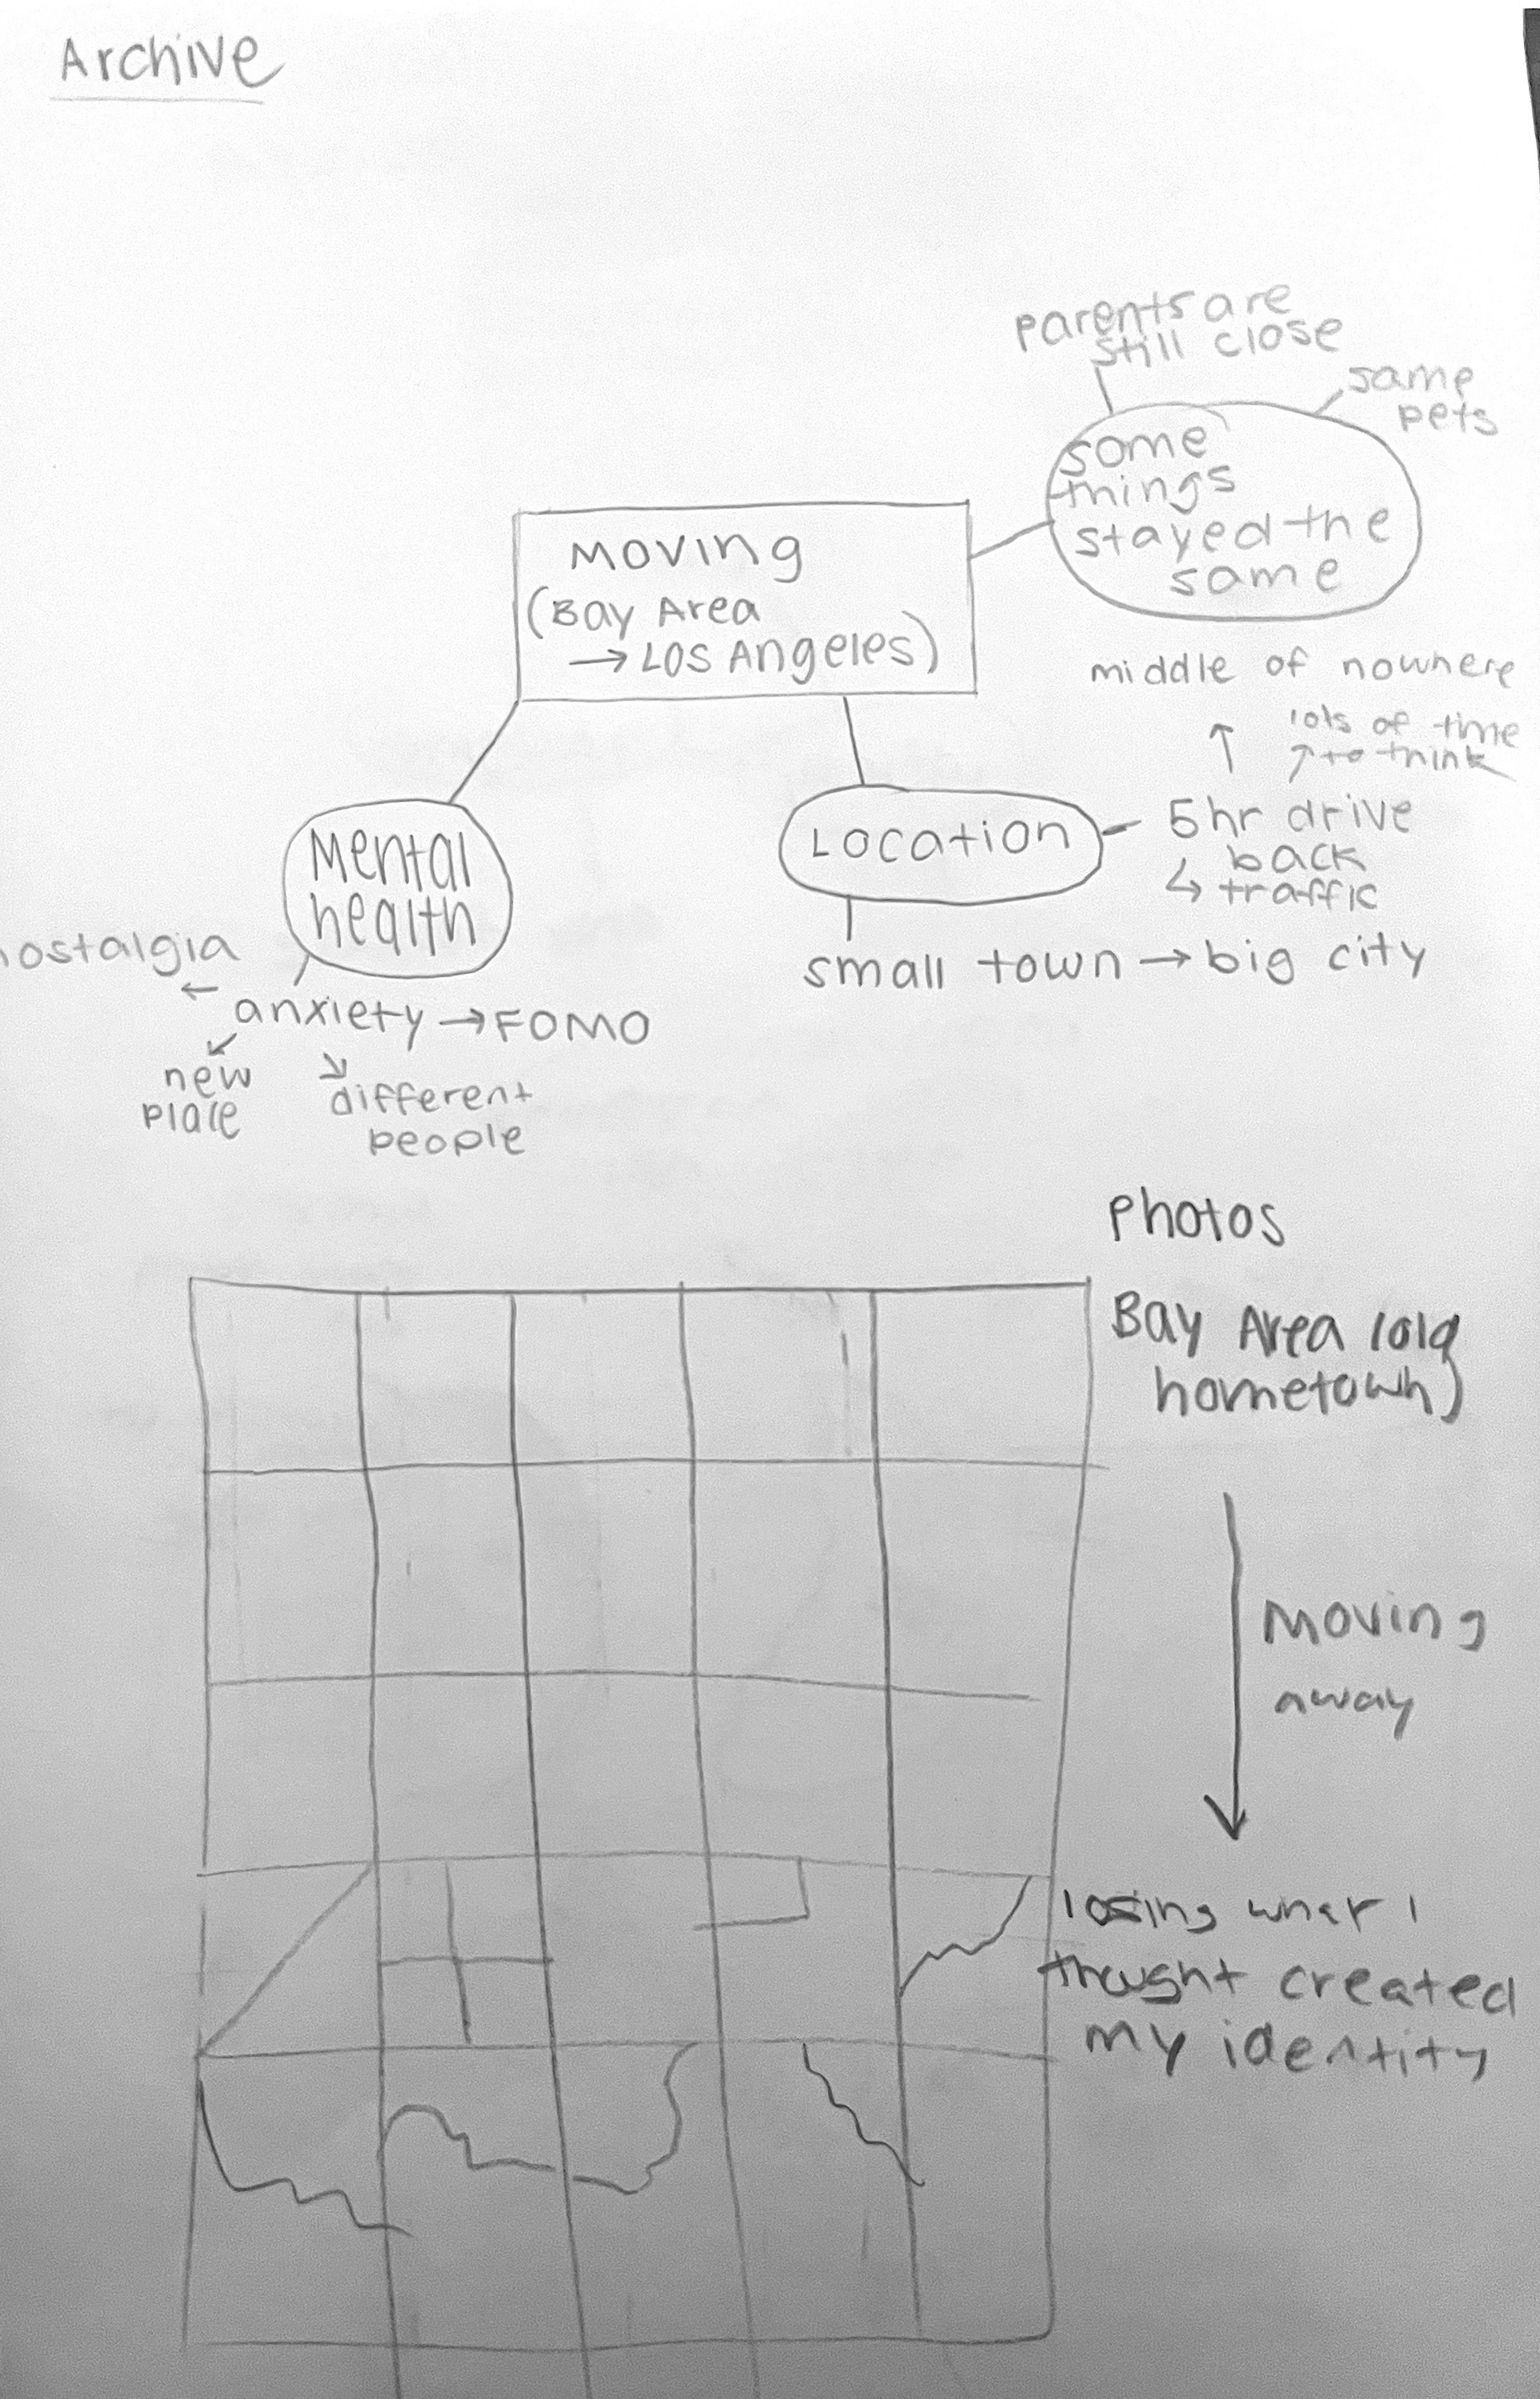 Archive
parents are
still close
same
pets
some
things
stayed the
same
Moving
(Bay Area
→ Los Angeles)
middle of nowhere
↑
lots of time
↗ to think
Mental
health
Location
5hr drive
back
↳ traffic
small town → big city
nostalgia
←
anxiety → FOMO
↙
new
place
↘
different
people
Photos
Bay Area (old
hometown)
Moving
away
losing what I
thought created
my identity